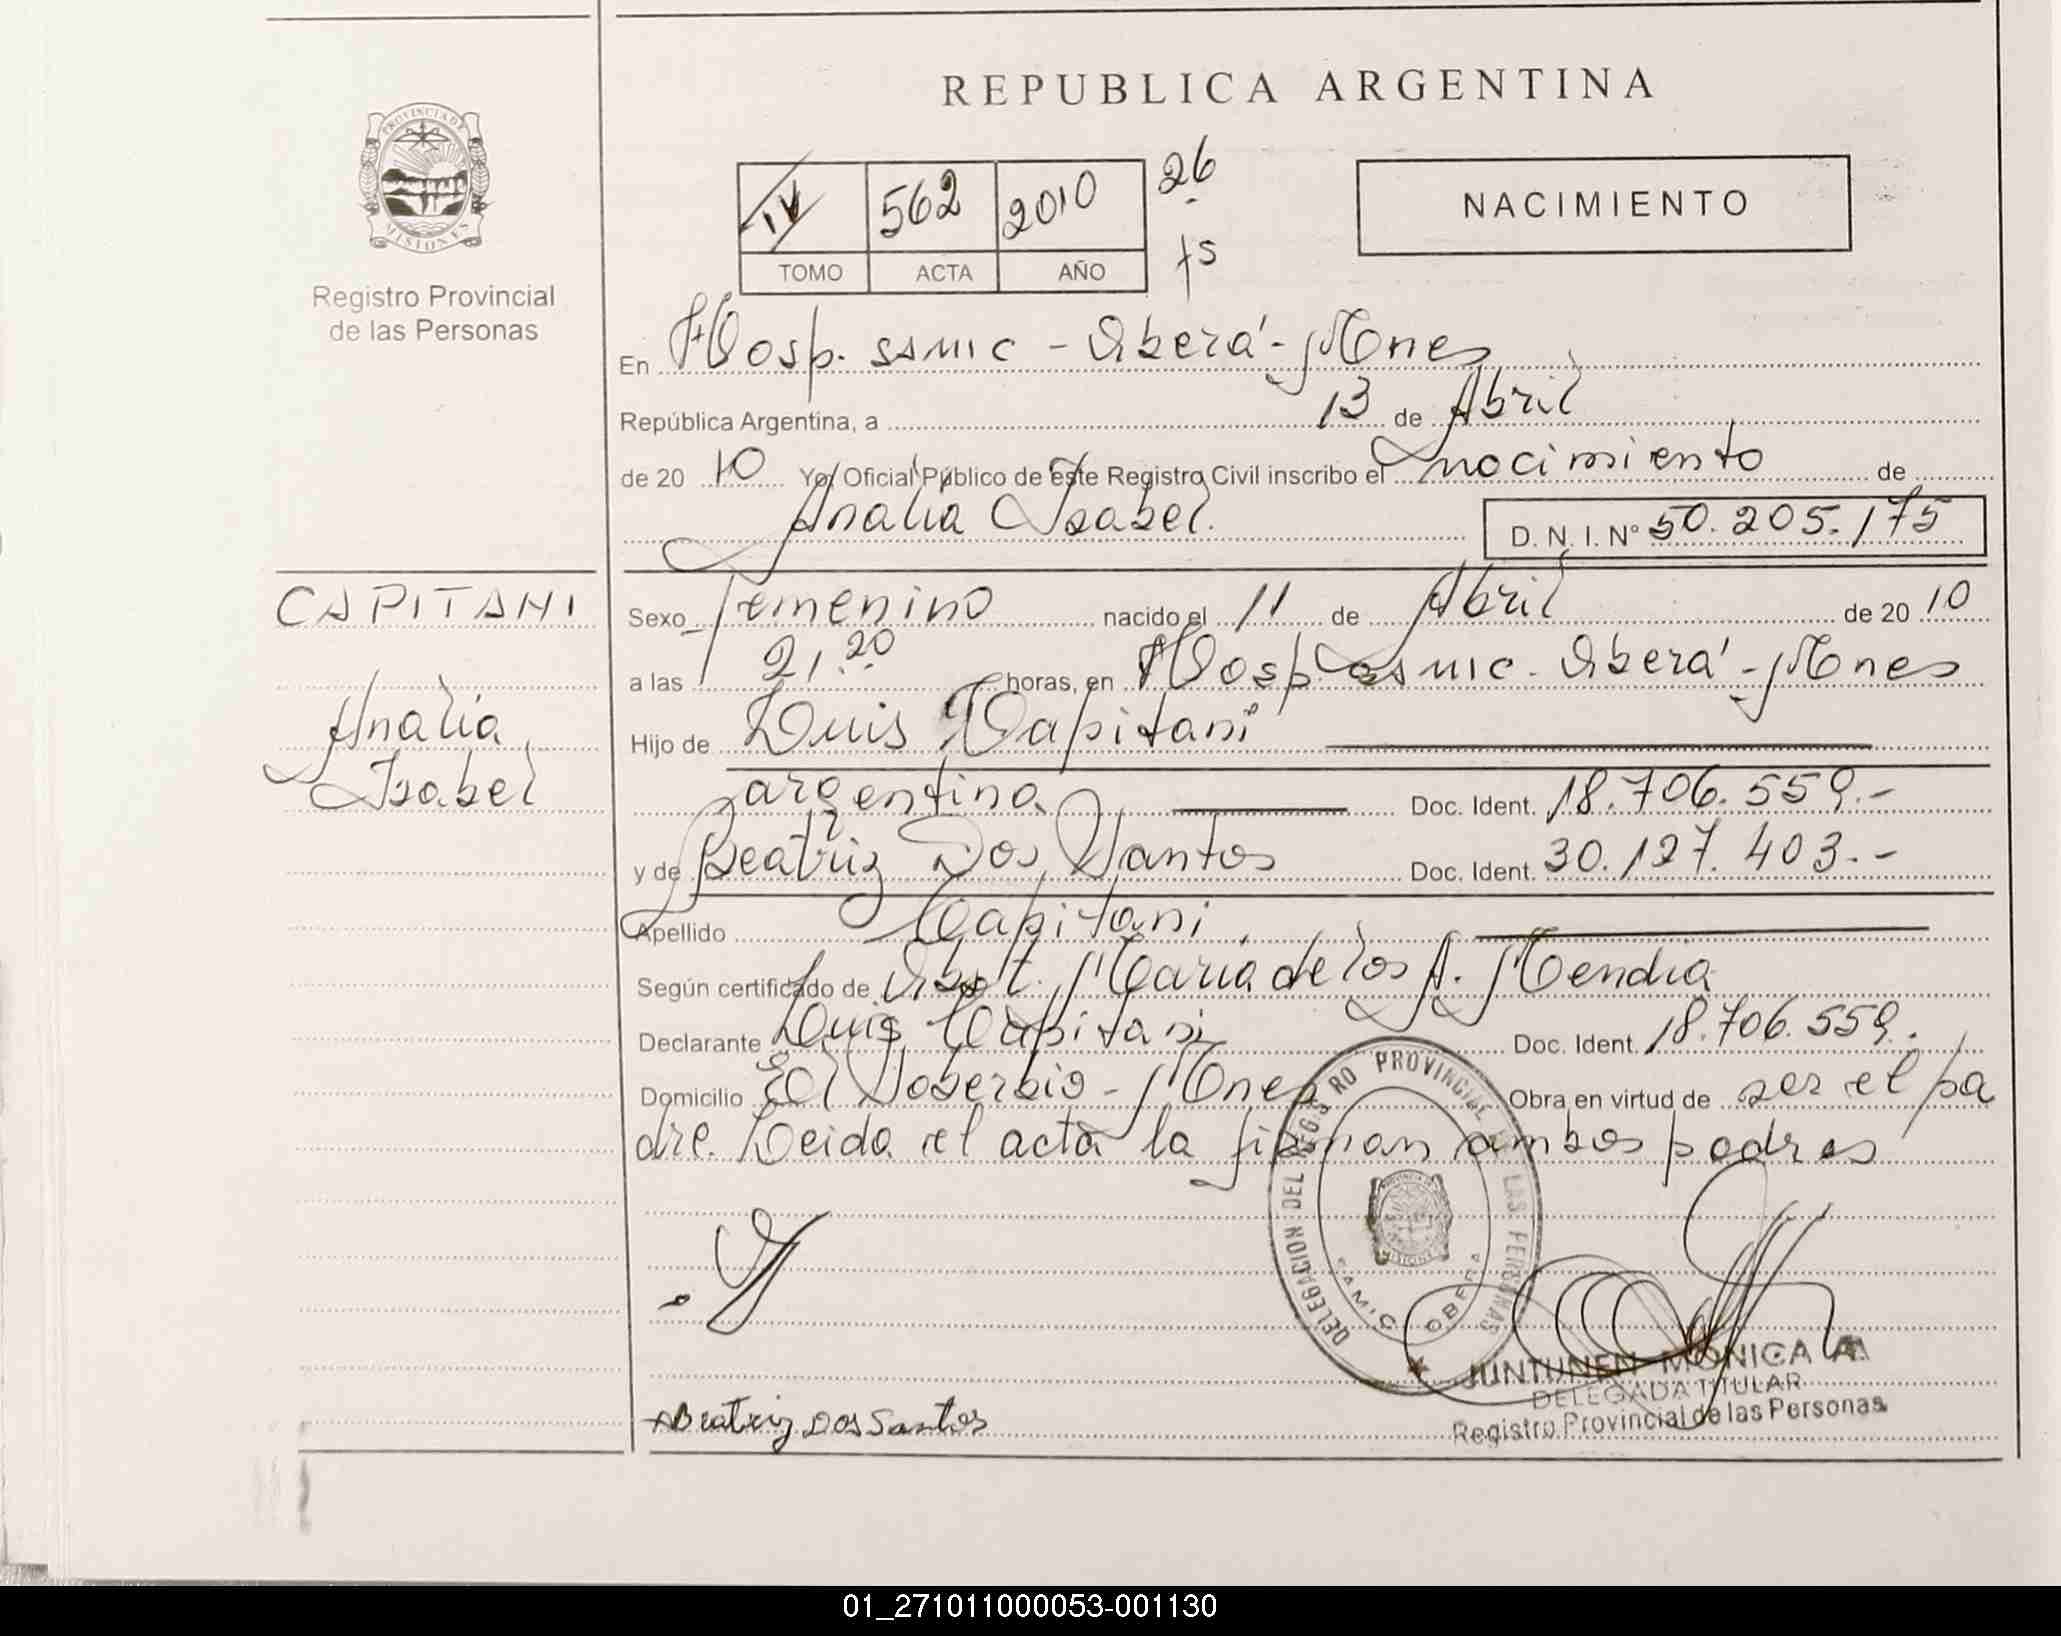 REPUBLICA ARGENTINA
PROVINCIA DE
MISIONES
Registro Provincial
de las Personas
IV 562 2010 26
TOMO ACTA AÑO fs
NACIMIENTO
En Hosp. SAMIC - Oberá - Mnes
República Argentina, a 13 de Abril
de 20 10 Yo, Oficial Público de este Registro Civil inscribo el nacimiento de
Analia Isabel.
D. N. I. Nº 50.205.175
CAPITANI
Analia
Isabel
Sexo femenino nacido el 11 de Abril de 20 10
a las 21.20 horas, en Hosp. SAMIC - Oberá - Mnes
Hijo de Luis Capitani
argentino Doc. Ident. 18.706.559.-
y de Beatriz Dos Santos Doc. Ident. 30.127.403.-
Apellido Capitani.
Según certificado de Obst. Maria de los A. Mendia
Declarante Luis Capitani Doc. Ident. 18.706.559.
Domicilio El Soberbio - Mnes Obra en virtud de ser el pa
dre. Leida el acta la firman ambos padres
DELEGACION DEL REGISTRO PROVINCIAL DE LAS PERSONAS
SAMIC OBERA
MISIONES
JUNTUNEN MONICA A.
DELEGADA TITULAR
Registro Provincial de las Personas
Beatriz Dos Santos
01_271011000053-001130